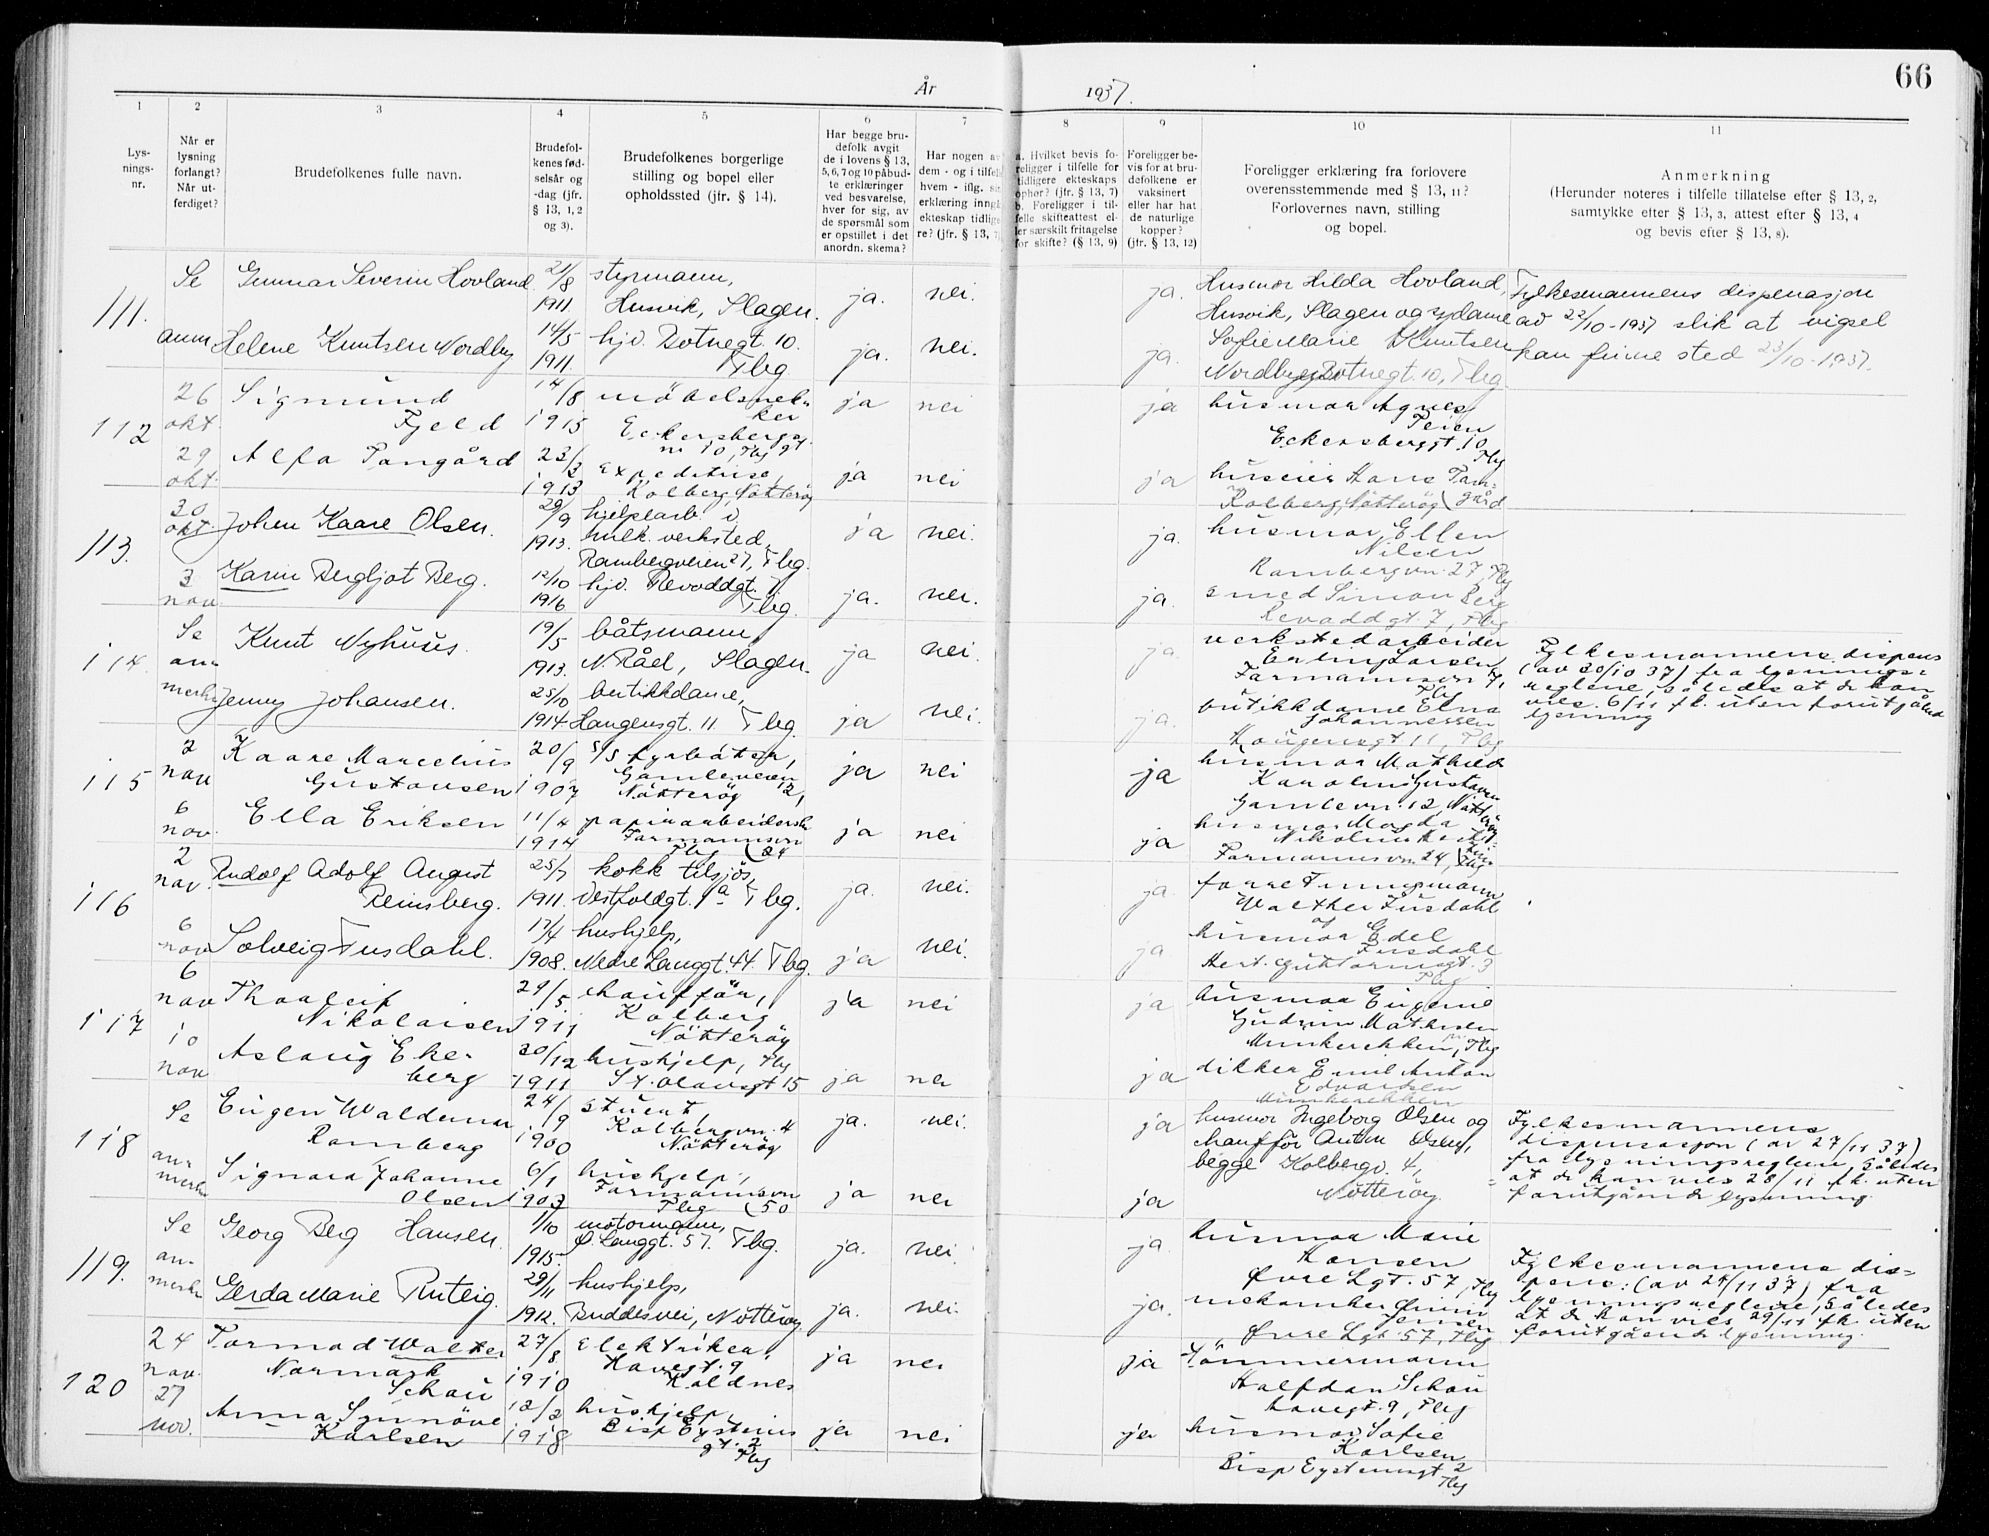 66
År 1937.
1
2
3
4
5
6
7
8
9
10
11
Lys-
nings-
nr.
Når er
lysning
forlangt?
Når ut-
ferdiget?
Brudefolkenes fulle navn.
Brudefol-
kenes fød-
selsår og
-dag (jfr.
§ 13, 1, 2
og 3).
Brudefolkenes borgerlige
stilling og bopel eller
opholdssted (jfr. § 14).
Har begge bru-
defolk avgit
de i lovens § 13,
5, 6, 7 og 10 påbud-
te erklæringer
ved besvarelse,
hver for sig, av
de spørsmål som
er opstillet i det
anordn. skema?
Har nogen av
dem - og i tilfelle
hvem - iflg. sin
erklæring inngå
ekteskap tidlige-
re? (jfr. § 13, 7)
a. Hvilket bevis fo-
religger i tilfelle for
tidligere ekteskaps
ophør? (jfr. § 13, 7)
b. Foreligger i til-
felle skifteattest el-
ler særskilt fritagelse
for skifte? (§ 13, 9)
Foreligger be-
vis for at bru-
defolkene er
vaksinert
eller har hat
de naturlige
kopper?
(jfr. § 13, 12)
Foreligger erklæring fra forlovere
overensstemmende med § 13, 11?
Forlovernes navn, stilling
og bopel.
Anmerkning
(Herunder noteres i tilfelle tillatelse efter § 13, 2,
samtykke efter § 13, 3, attest efter § 13, 4
og bevis efter § 13, 8).
111.
Se
anm
Gunnar Severin Hovland
21/8
1911
styrmann,
Husvik, Slagen.
ja.
nei.
ja.
Husmor Hilda Hovland,
Husvik, Slagen og sydame
Fylkesmannens dispensasjon
av 22/10-1937 slik at vigsel
kan finne sted 23/10-1937.
Helene Knutsen Nordby
14/5
1911.
hjv. Rotnegt. 10.
Tbg.
ja.
nei.
ja.
Sofie Marie Knutsen
Nordby, Rotnegt. 10, Tbg
112
26
okt.
29
okt.
Sigmund
Fjeld
14/8
1915
möbelsnek-
ker
Eckersbergs
gt
nr 10, Tbg
ja
nei
ja
husmor Agnes
Teien
Eckersberggt. 10
Tbg
Alfa Tangård
23/3
1913
Expeditrise,
Kolberg, Nötteröy
ja
nei
ja
huseier Hans Tan-
gård
Kolberg, Nötteröy
113.
30
okt.
3
nov.
Johan Kaare Olsen.
29/9
1913.
hjelpearb. i
mek. verksted,
Rambergveien 27, Tbg.
ja
nei.
ja.
husmor Ellen
Nilsen
Rambergvn. 27, Tbg
Karin Bergljot Berg.
12/10
1916
hjv. Revaddgt. 7.
Tbg.
ja.
nei.
ja.
smed Simon Berg
Revaddgt. 7, Tbg
114.
Se
an-
merkn
Knut Nyhuus.
19/5
1913.
båtsmann,
N. Råel, Slagen.
ja
nei.
ja.
verkstedarbeider
Erling Larsen
Farmannsvn 7,
Tbg
Fylkesmannens dispens
(av 30/10 37) fra lysnings-
reglene, således at de kan
vies 6/11 fk. uten forutgående
lysning
Jenny Johansen.
25/10
1914.
butikkdame,
Haugensgt. 11. Tbg.
ja
nei.
ja.
butikkdame Elna
Johannessen
Haugensgt 11, Tbg
115
2
nov
6
nov.
Kaare Marcelius
Gustavsen
20/9
1907
s/s fyrböter,
Gamleveien
12,
Nötteröy
ja
nei
ja
husmor Mathilde
Karoline Gustavsen
Gamlevn. 12, Nötteröy
Ella Eriksen
11/4
1914
papirarbeiderske
Farmannsvn
24
Tbg
ja
nei
ja
husmor Magda
Nikoline
Farmannsvn 24, Tbg
116
2
nov.
6
nov
Rudolf Adolf August
Reinsberg.
25/7
1911.
kokk tilsjös,
Vestfoldgt. 1a Tbg.
ja.
nei.
ja.
Walther Fusdahl
og
Solveig Fusdahl.
17/4
1908.
hushjelp,
Nedre Langgt. 44. Tbg.
ja
nei.
ja
husmor Edel
Fusdahl
Hert. Guttormsgt. 3
Tbg
117
6
nov
10
nov
Thoaleif
Nikolaisen
29/5
1911
chaufför,
Kolberg
Nötteröy
ja
nei
ja
husmor Eugenie
Gudrun Mathisen
Munkerekken, Tbg
Aslaug Eker-
berg
20/12
1911
hushjelp, Tbg
St. Olavsgt 15
ja
nei
ja
dikker Emil Anton
Edvardsen
Munkerekken
118
Se
an-
merkn
Eugen Waldemar
Ramberg
24/9
1900
stuert,
Kolbergvn. 4
Nötteröy
ja.
nei.
ja
husmor Ingeborg Olsen og
chaufför Anton Olsen,
begge Kolbergv. 4,
Nötteröy.
Fylkesmannens
dispensasjon (av 27/11 37)
fra lysningsreglene, således
at de kan vies 28/11 fk. uten
forutgående lysning.
Signora Johanne
Olsen
6/1
1903
hushjelp,
Farmannsvn
50
Tbg
ja
nei
ja
119.
Se
an-
merkn
Georg Berg Hansen.
1/10
1915.
motormann,
Ø. Langgt. 57. Tbg.
ja.
nei.
ja.
husmor Marie
Hansen
Øvre Lgt. 57, Tbg
Fylkesmannens dis-
pens. (av 29/11 37) fra
lysningsreglene, således
at de kan vies 29/11 fk. uten
forutgående lysning.
Gerda Marie Ruteig.
29/11
1912.
hushjelp,
Buddesvei, Nötteröy.
ja.
nei.
ja.
mekaniker
Jensen
Øvre Lgt. 57, Tbg
120
24
nov.
27
nov.
Tormod Walter
Normark
Schau
27/8
1910
Elektriker,
Havegt. 9
Kaldnes
ja
nei
ja
tömmermann
Halfdan Schau
Havegt. 9, Tbg
Anna Synnöve
Karlsen
12/2
1918
hushjelp,
Bisp Eysteins
gt. 2
Tbg
ja
nei
ja
husmor Sofie
Karlsen
Bisp Eysteinsgt 2
Tbg